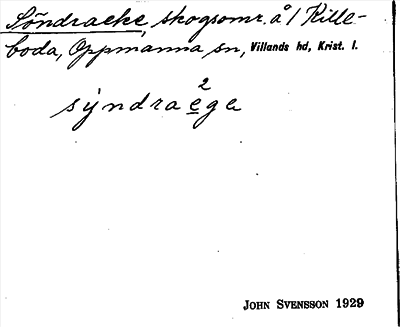 Söndraeke, skogsomr. å 1 Kille-
boda, Oppmanna sn, Villands hd, Krist. l.
2
sýndraega
JOHN SVENSSON 1929